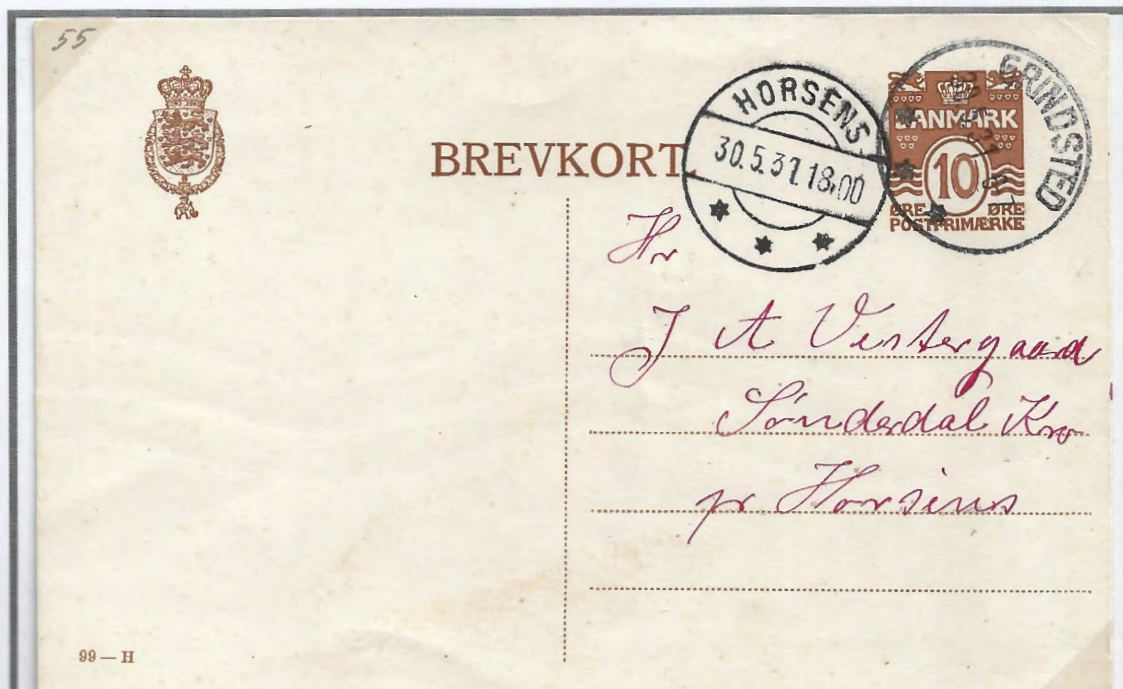 55
BREVKORT.
HORSENS
30.5.31.18.00
GRINDSTED
DANMARK
10
ØRE ØRE
POSTFRIMÆRKE
Hr
J A Vestergaard
Sønderdal Kro
pr Horsens
99 — H